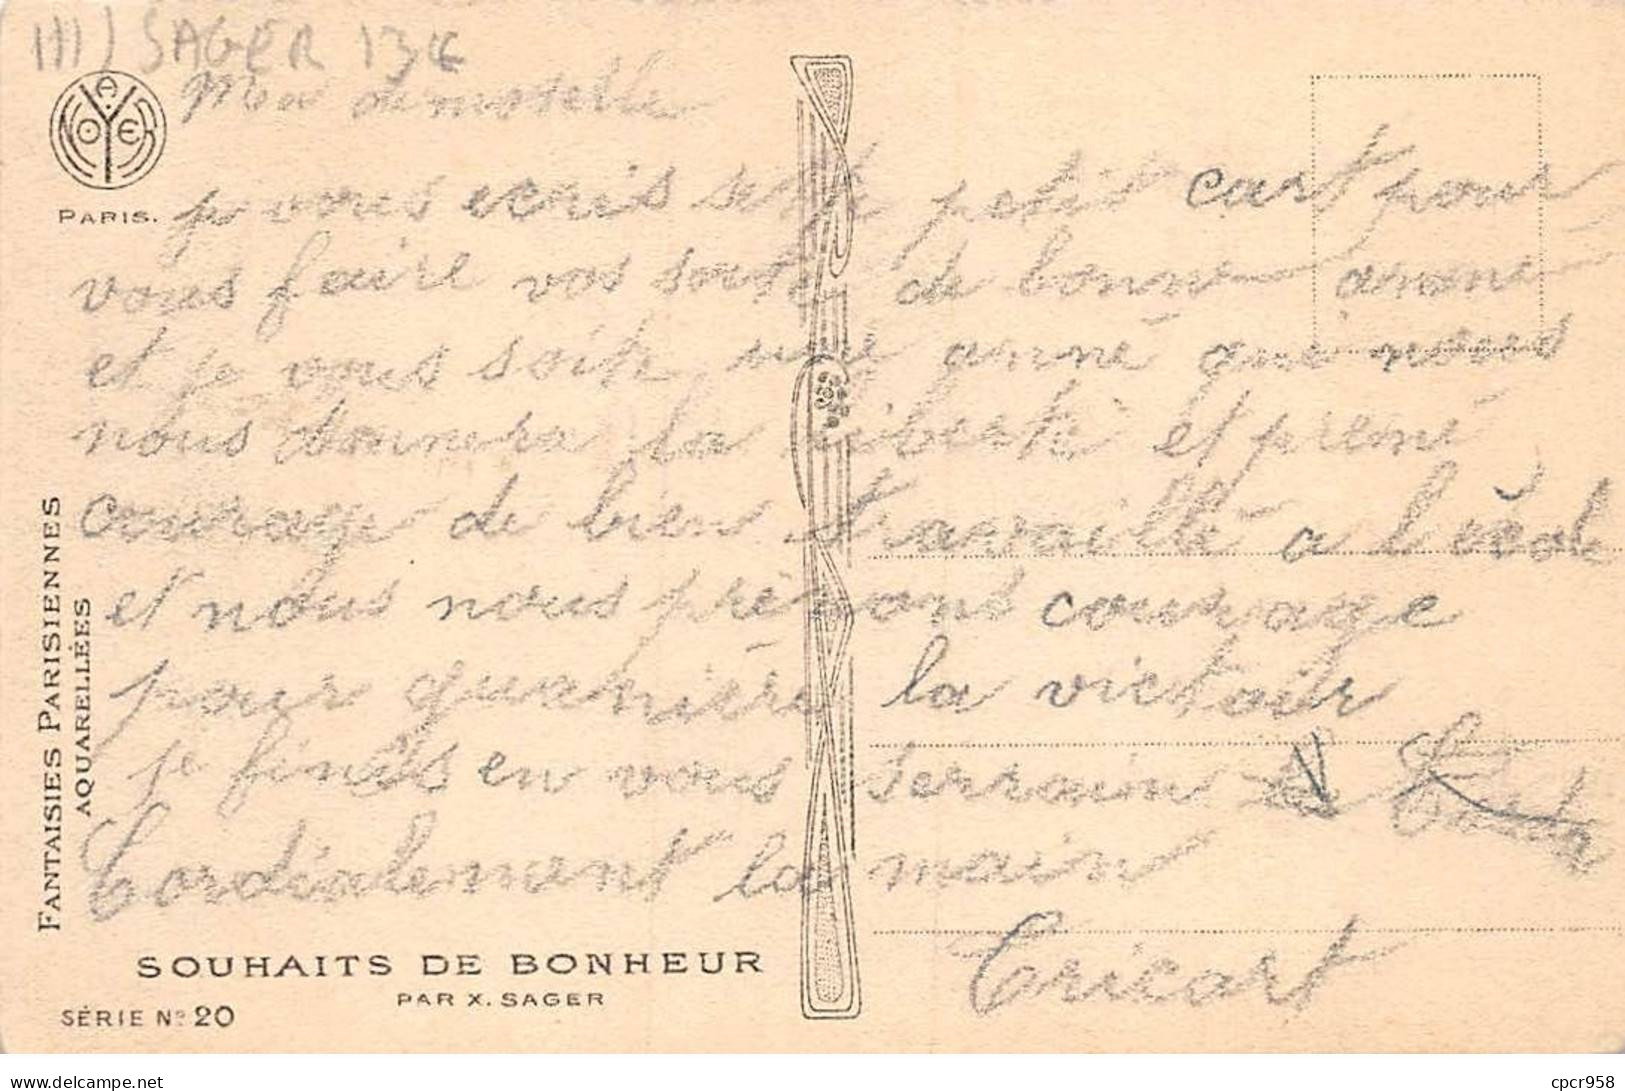 III) SAGER 134
Mad demoselle
NOYER
A
PARIS.
je vous ecris sest petit cart pour
vous faire vos souté de bonne anné
et je vous soite une anné que nous
nous donnera la liberté et prené
courage de bien travaillé a l'école
et nous nous prénons courage
pour quanière la victoir
je finis en vous serrain
Cordialement la main
Cricart
FANTAISIES PARISIENNES
AQUARELLÉES
SOUHAITS DE BONHEUR
PAR X. SAGER
SÉRIE No 20
delcampe.net
cpcr958